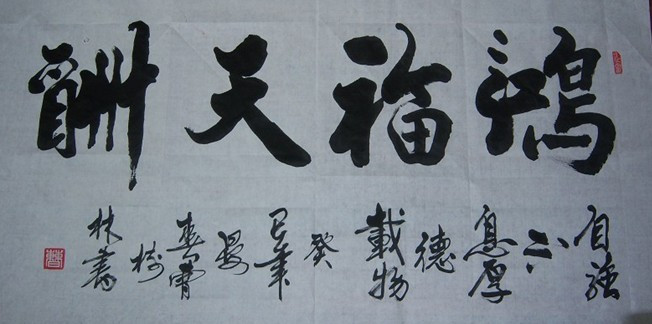 鴻福天酬
自強不息厚德載物 癸巳年 林書